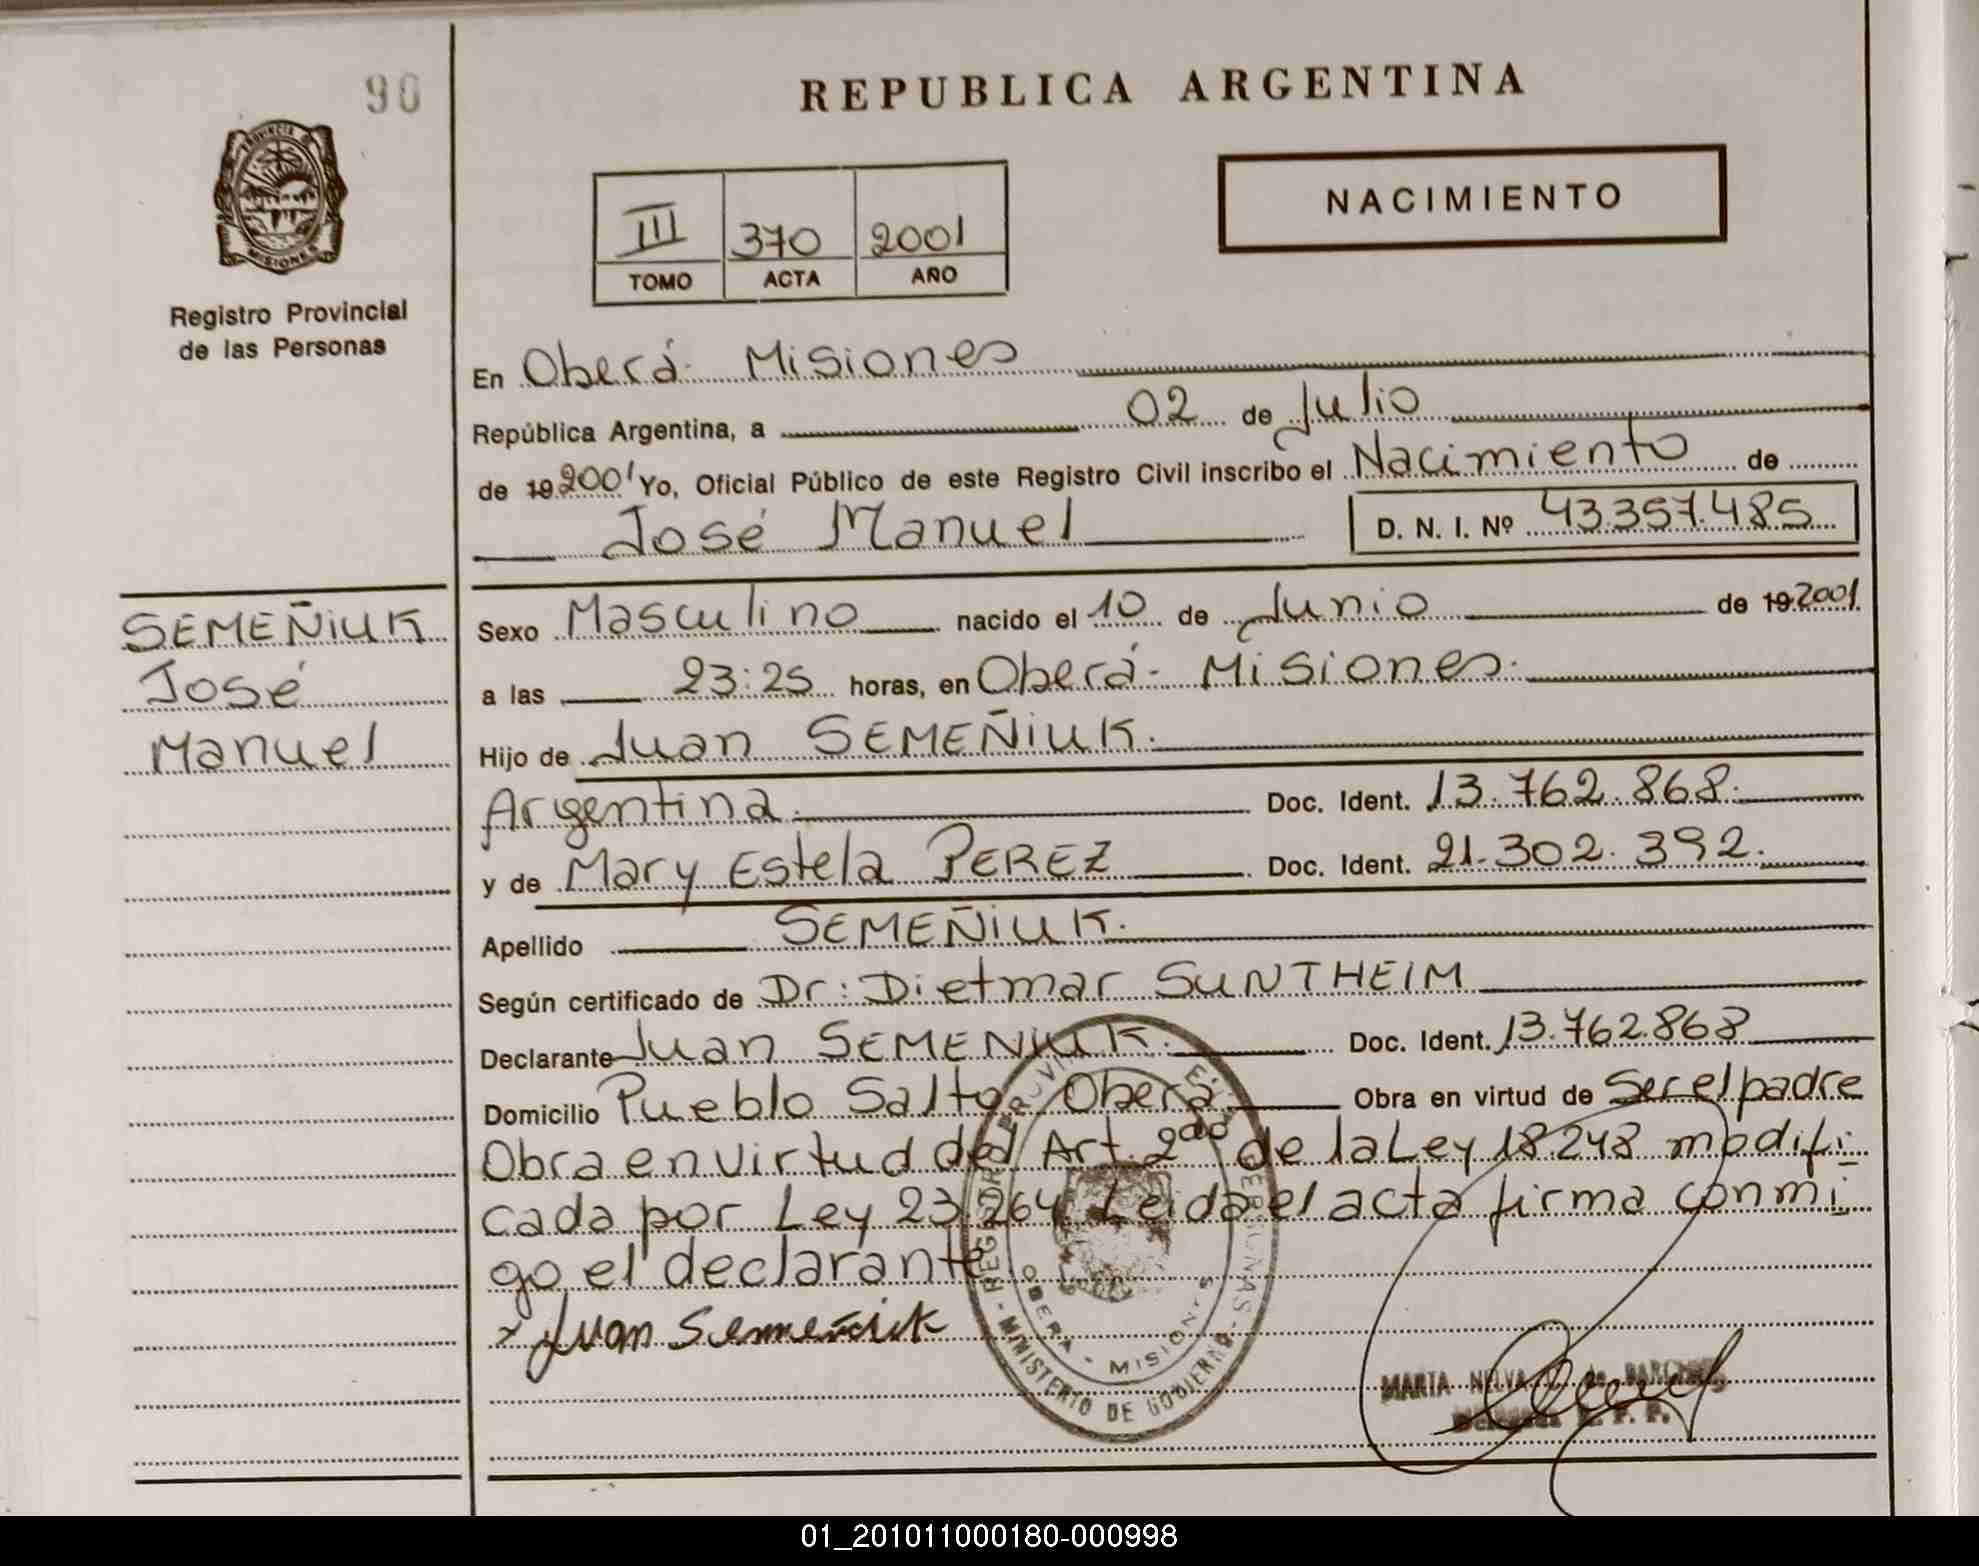 90
REPUBLICA ARGENTINA
NACIMIENTO
III 370 2001
TOMO ACTA AÑO
PROVINCIA DE
MISIONES
Registro Provincial
de las Personas
En Oberá- Misiones
República Argentina, a 02 de Julio
de 19 2001 Yo, Oficial Público de este Registro Civil inscribo el Nacimiento de
José Manuel D. N. I. Nº 43.357.485
SEMEÑIUK
José
Manuel
Sexo Masculino nacido el 10 de Junio de 19 2001
a las 23:25 horas, en Oberá- Misiones.
Hijo de Juan SEMEÑIUK.
Argentina. Doc. Ident. 13.762.868.
y de Mary Estela PEREZ Doc. Ident. 21.302.392.
Apellido SEMEÑIUK.
Según certificado de Dr: Dietmar SUNTHEIM
Declarante Juan SEMENIUK. Doc. Ident. 13.762.868
Domicilio Pueblo Salto, Oberá Obra en virtud de Ser el padre
Obra en virtud del Art. 2do de la Ley 18.248 modifi-
cada por Ley 23.264 Leida el acta firma conmi-
go el declarante
x Juan Semeñiuk
OBERA - MISIONES
MINISTERIO DE GOBIERNO
MARTA NELVA de
Delegada R. P. P.
01_201011000180-000998